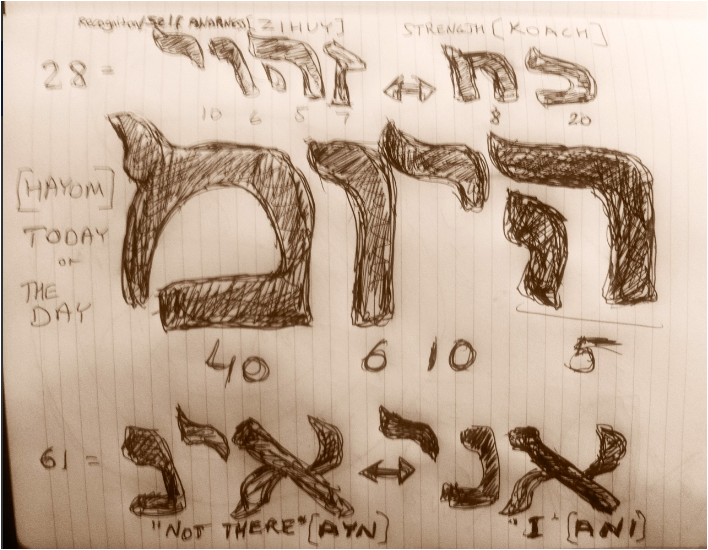 Recognition/Self AWARNESS [ZIHUY] STRENGTH [KOACH]
28 = כח ↔ זהוי
10 6 5 7 8 20
היומ
[HAYOM]
TODAY
or
THE
DAY
40 6 10 5
61 = אני ↔ אינ
"NOT THERE" [AYN] "I" [ANI]